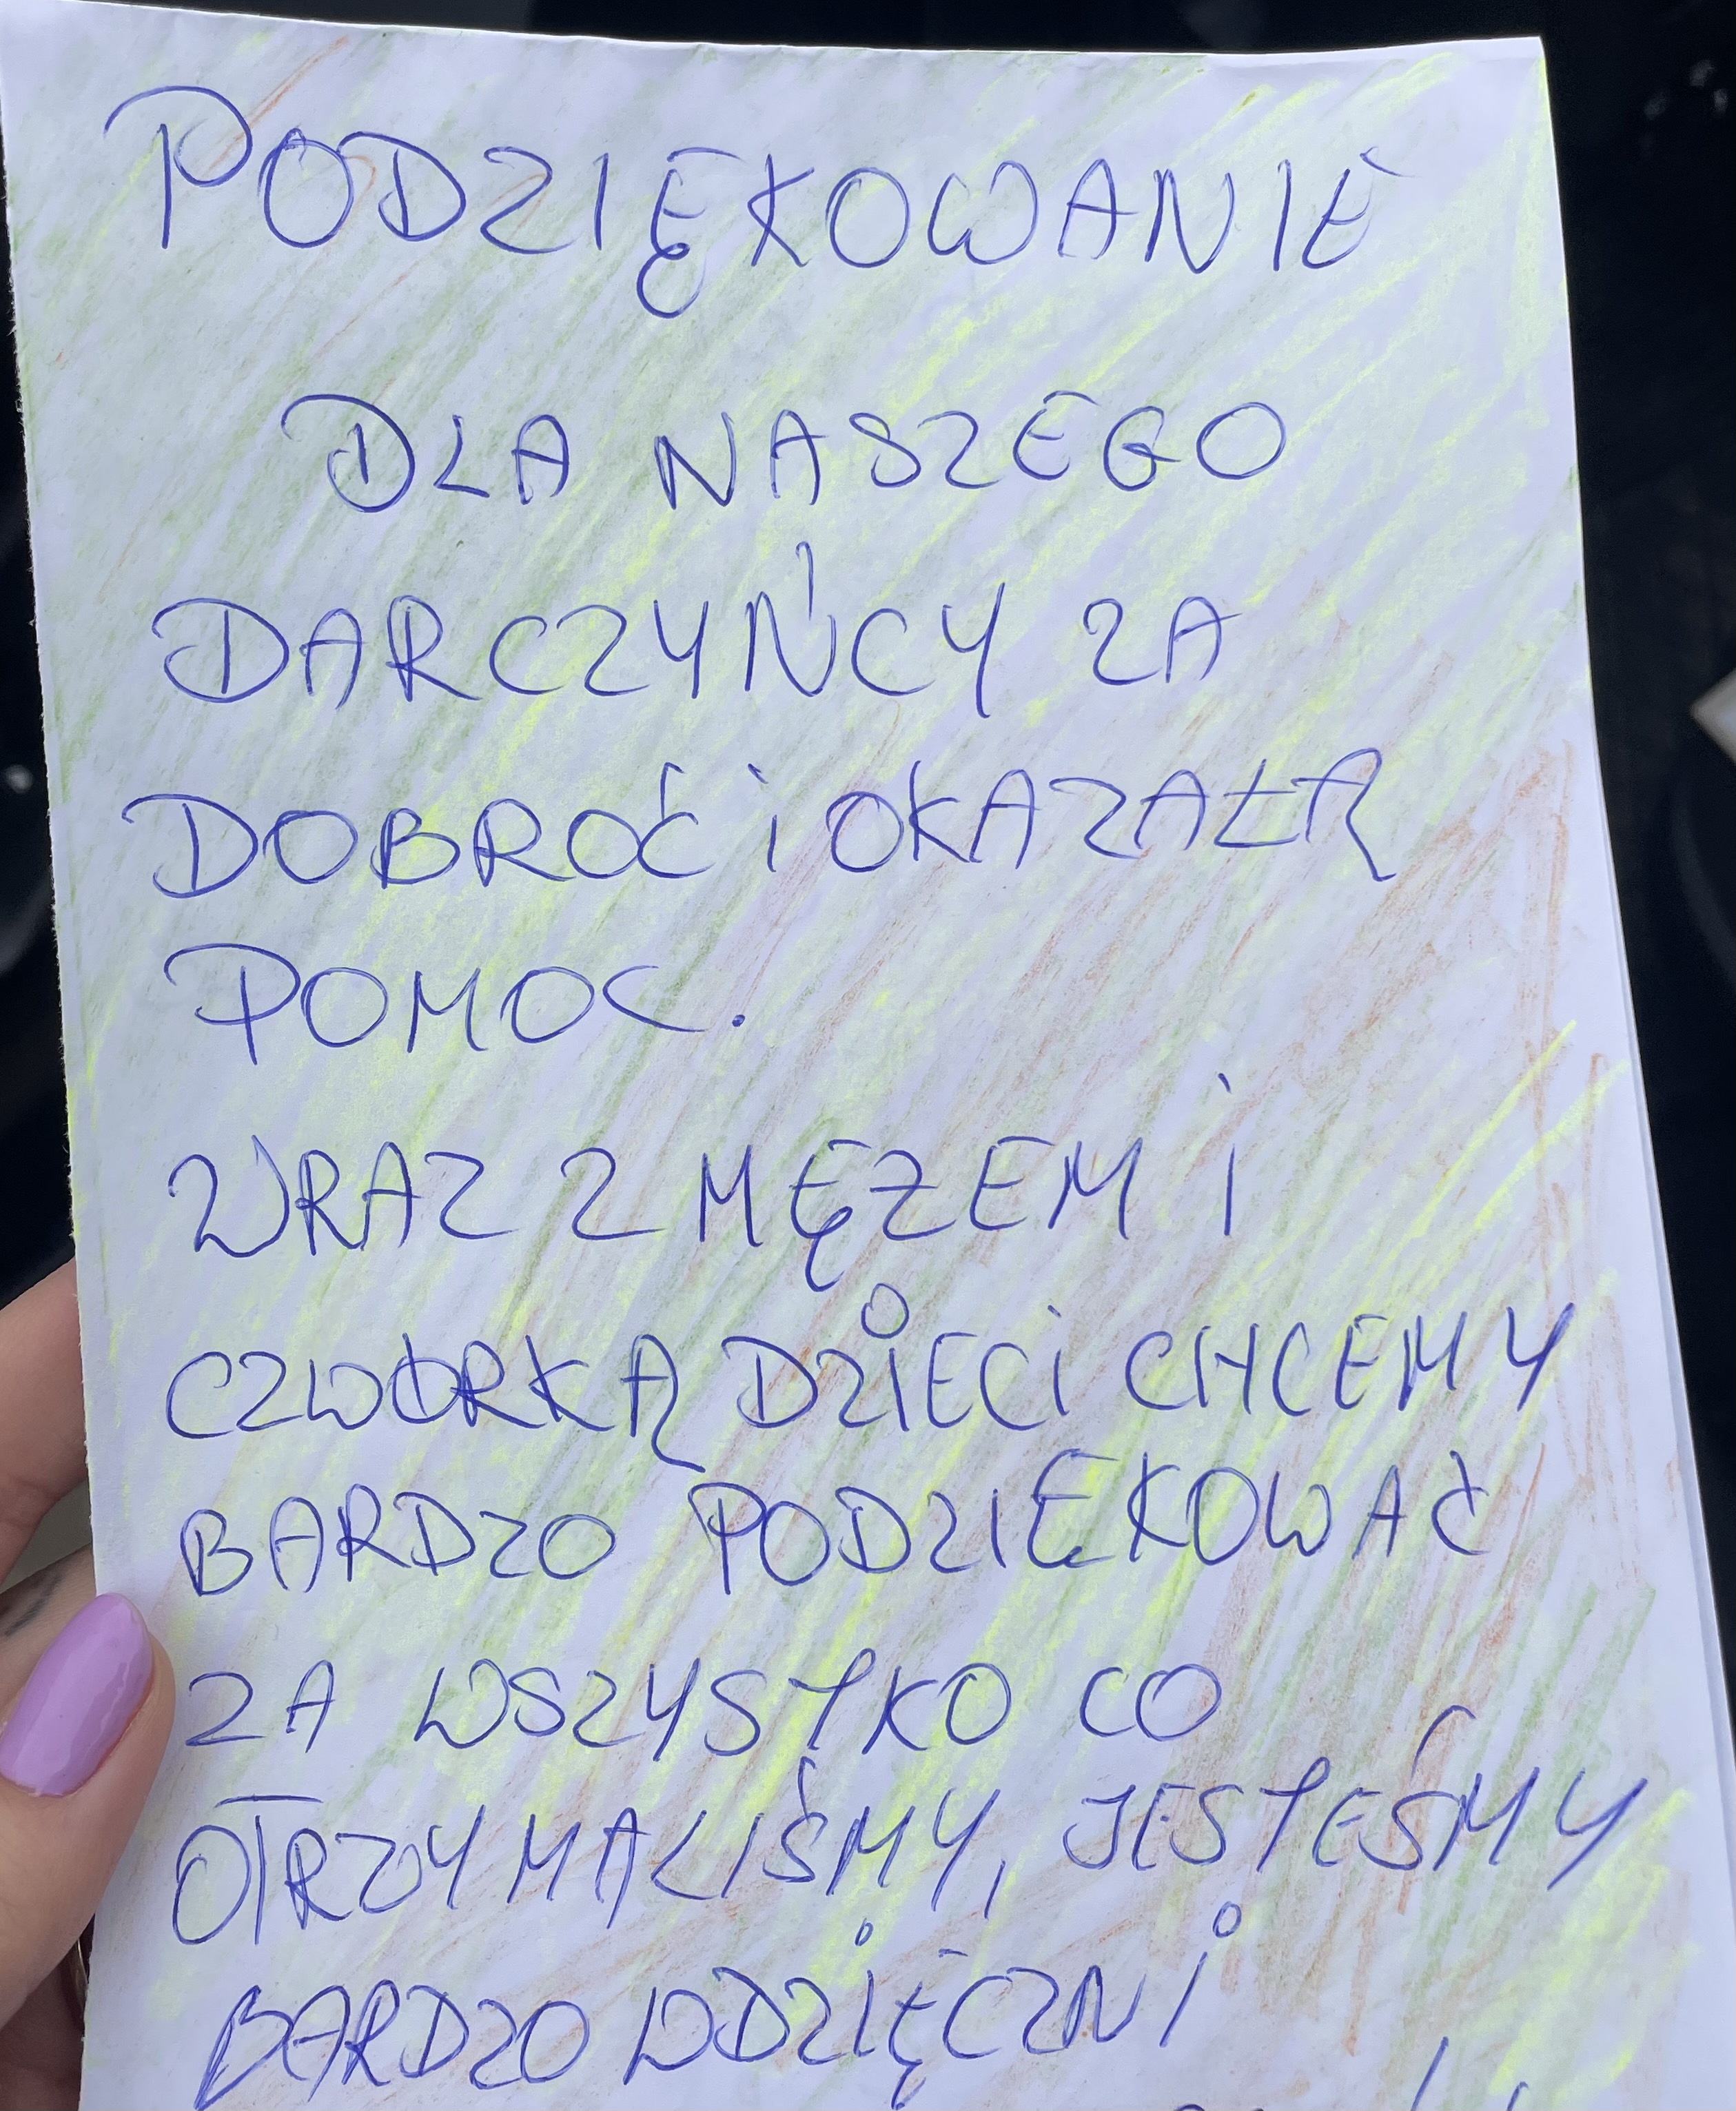 PODZIĘKOWANIE
DLA NASZEGO
DARCZYŃCY ZA
DOBROĆ i OKAZAŁĄ
POMOC.
WRAZ Z MĘŻEM i
CZWORKĄ DZIECI CHCEMY
BARDZO PODZIĘKOWAĆ
ZA WSZYSTKO CO
OTRZYMALIŚMY, JESTEŚMY
BARDZO WDZIĘCZNI